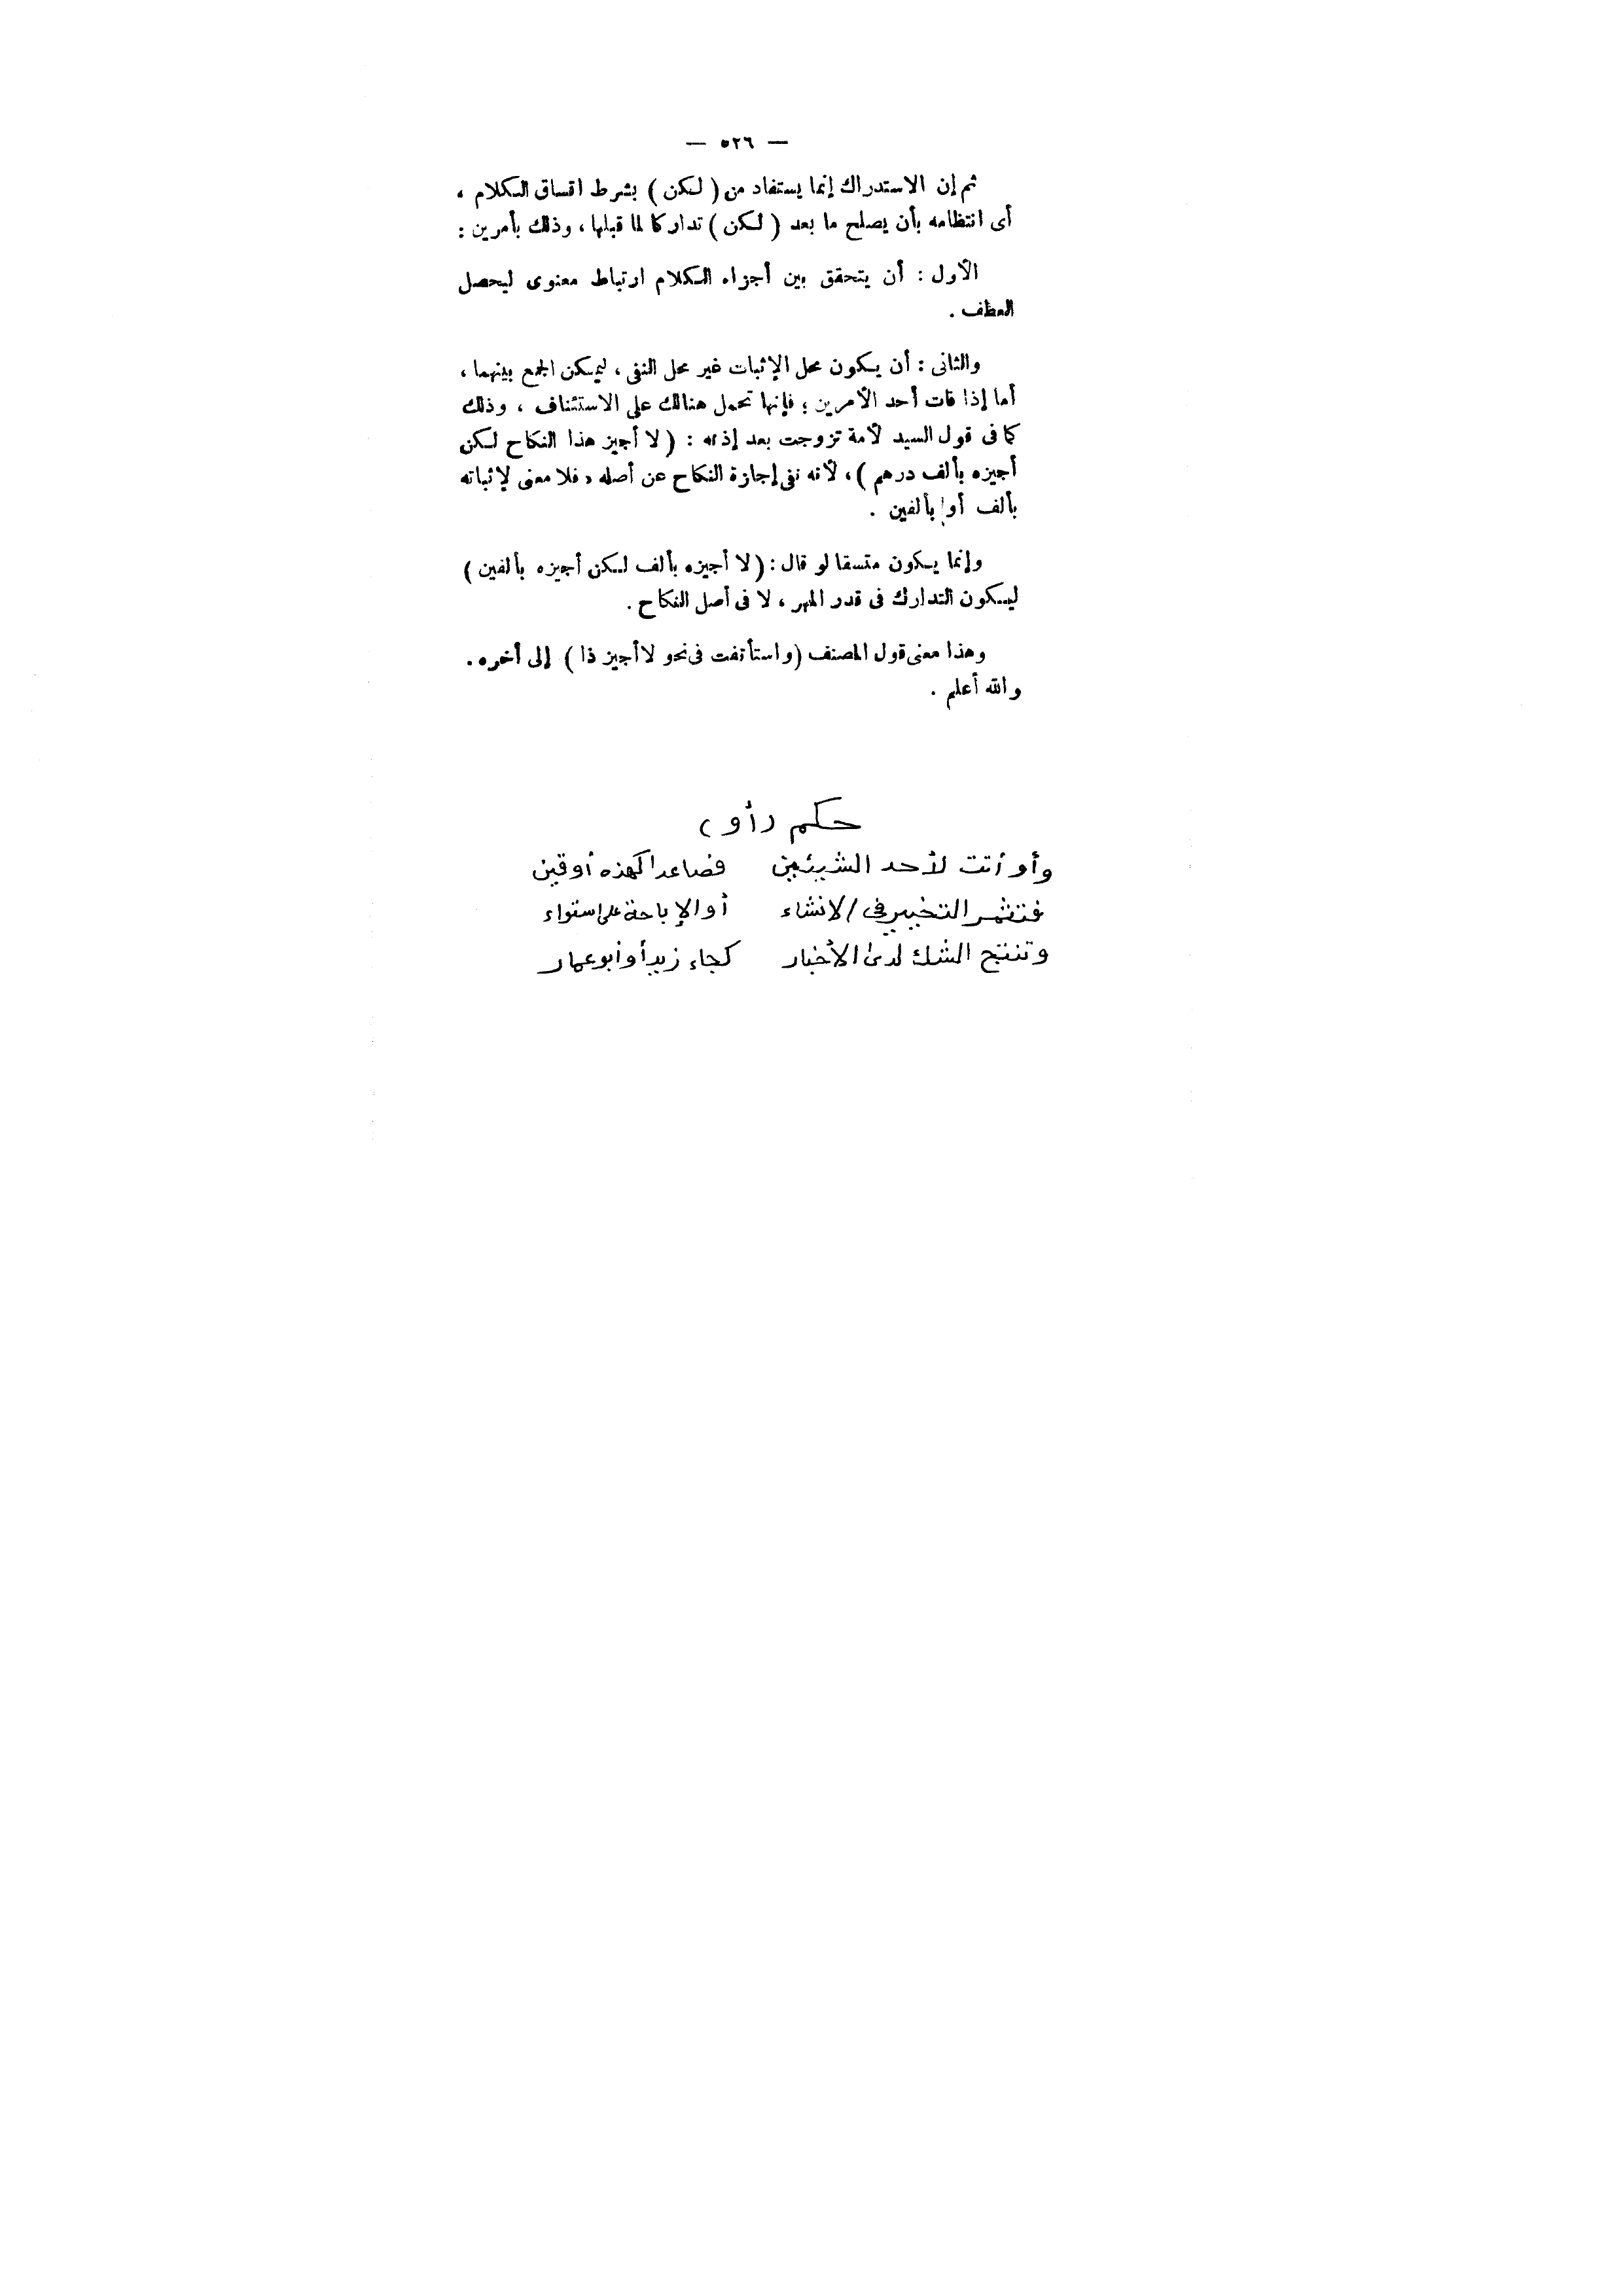 — ٥٢٦ —
ثم إن الاستدراك إنما يستفاد من ( لكن ) بشرط اتساق الكلام ،
أى انتظامه بأن يصلح ما بعد ( لكن ) تداركا لما قبلها ، وذلك بأمرين :
الأول : أن يتحقق بين أجزاء الكلام ارتباط معنوى ليحصل
العطف .
والثانى : أن يكون محل الإثبات غير محل النفى ، ليمكن الجمع بينهما ،
أما إذا فات أحد الأمرين ؛ فإنها تحمل هنالك على الاستئناف ، وذلك
كما فى قول السيد لأمة تزوجت بعد إذنه : ( لا أجيز هذا النكاح لكن
أجيزه بألف درهم ) ، لأنه نفى إجازة النكاح عن أصله ، فلا معنى لإثباته
بألف أو بألفين .
وإنما يكون متسقا لو قال : ( لا أجيزه بألف لكن أجيزه بألفين )
ليكون التدارك فى قدر المهر ، لا فى أصل النكاح .
وهذا معنى قول المصنف ( واستأنفت فى نحو لا أجيز ذا ) إلى أخره .
والله أعلم .
حكم (أو)
وأو أتت لأحد الشيئين فصاعدا كهذه أو قين
فتثمر التخيير فى الانشاء أو الإباحة على استواء
وتنتج الشك لدى الأخبار كجاء زيد أو أبو عمار